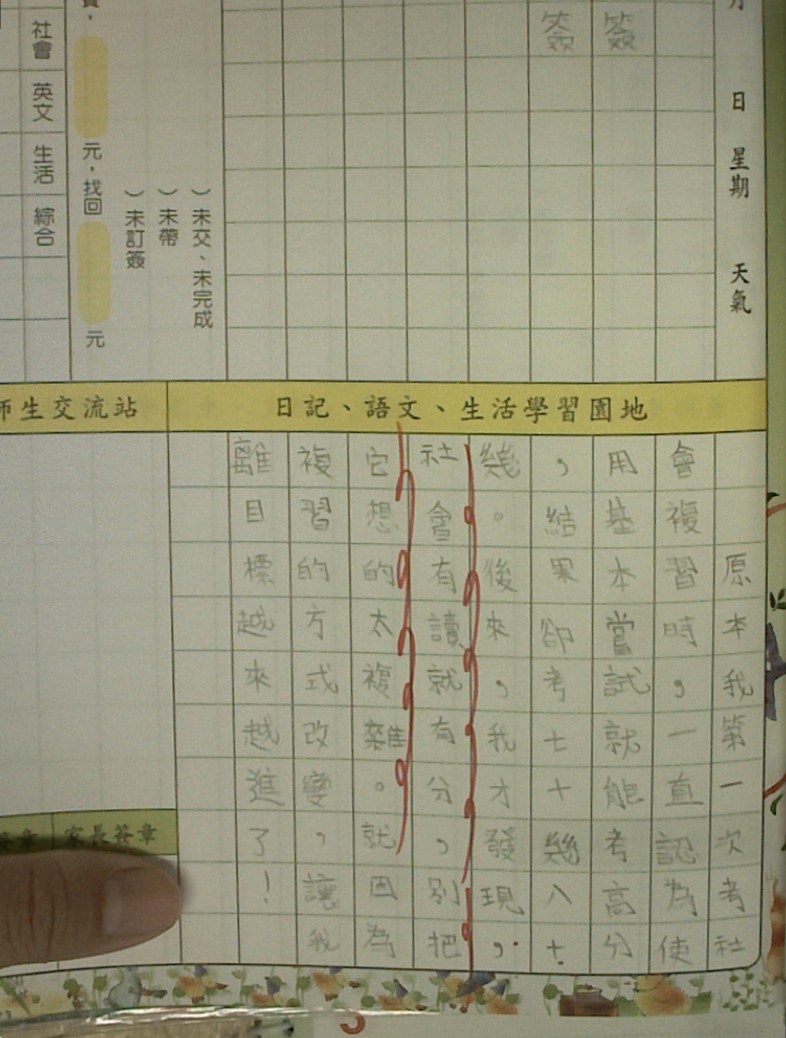 月　日　星期　天氣
簽
簽
）未交、未完成
）未帶
）未訂簽
元，找回　元
社會　英文　生活　綜合
日記、語文、生活學習園地
師生交流站
原本我第一次考社
會複習時，一直認為使
用基本嘗試就能考高分
，結果卻考七十幾八十
幾。後來，我才發現，
社會有讀就有分，別把
它想的太複雜。就因為
複習的方式改變，讓我
離目標越來越進了！
家長簽章
簽章